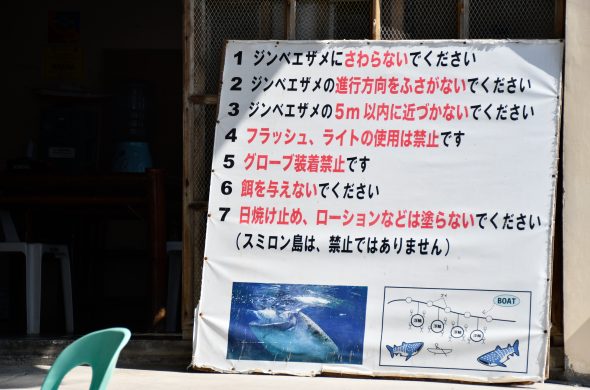 1 ジンベエザメにさわらないでください
2 ジンベエザメの進行方向をふさがないでください
3 ジンベエザメの5m以内に近づかないでください
4 フラッシュ、ライトの使用は禁止です
5 グローブ装着禁止です
6 餌を与えないでください
7 日焼け止め、ローションなどは塗らないでください
(スミロン島は、禁止ではありません)
BOAT